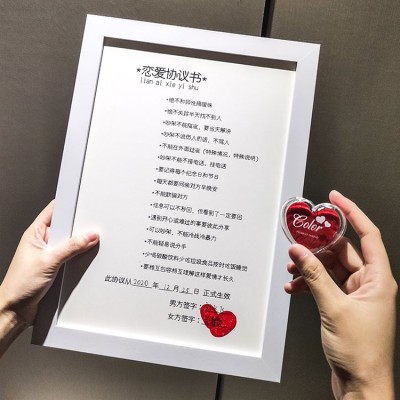 ★恋爱协议书★
lian ai xie yi shu
•绝不和异性搞暧昧
•绝不失踪半天找不到人
•吵架不能隔夜，要当天解决
•吵架不说伤人的话，不骂人
•不能在外面过夜（特殊情况，特殊说明）
•吵架不能不接电话，挂电话
•要记得每个纪念日和节日
•每天都要问候对方早晚安
•不能欺骗对方
•信息可以不秒回，但看到了一定要回
•遇到开心或难过的事要彼此分享
•可以吵架，不能冷战冷暴力
•不能轻易说分手
•少喝碳酸饮料少吃垃圾食品按时吃饭睡觉
•要相互包容相互理解这样爱情才长久
此协议从2020年12月25日 正式生效
男方签字：
女方签字：
Color